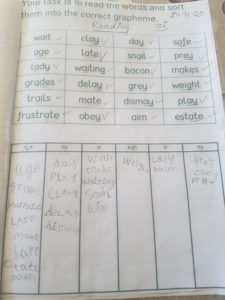 Your task is to read the words and sort
them into the correct grapheme.
Reading ai
wait clay day safe
age late snail prey
lady waiting bacon makes
grades delay grey weight
trails mate dismay play
frustrate obey aim estate
a_e ay ai eigh a ey
age day wait weigh lady grey
play trails bacon obey
clay waiting prey
late delay snail
mate dismay aim
safe